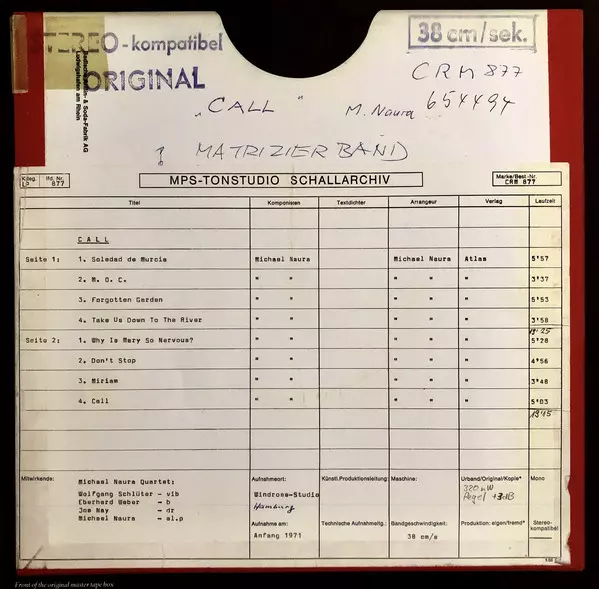 STEREO-kompatibel
38 cm/sek.
ORIGINAL
Soda-Fabrik AG
Ludwigshafen am Rhein
CRM 877
654494
„CALL" M. Naura
! MATRIZIER BAND
Kateg. LP lfd. Nr. 877
MPS-TONSTUDIO SCHALLARCHIV
Marke/Best-Nr. CRM 877
Titel Komponisten Textdichter Arrangeur Verlag Laufzeit
CALL
Seite 1: 1. Soledad de Murcia Michael Naura Michael Naura Atlas 5'57
2. M. O. C. " " " " " 3'37
3. Forgotten Garden " " " " " 5'53
4. Take Us Down To The River " " " " " 3'58
19'25
Seite 2: 1. Why Is Mary So Nervous? " " " " " 5'28
2. Don't Stop " " " " " 4'56
3. Miriam " " " " " 3'48
4. Call " " " " " 5'03
19'15
Mitwirkende: Michael Naura Quartett;
Wolfgang Schlüter - vib
Eberhard Weber - b
Joe Nay - dr
Michael Naura - el.p
Aufnahmeort:
Windrose-Studio
Hamburg
Aufnahme am:
Anfang 1971
Künstl. Produktionsleitung:
Technische Aufnahmeltg.:
Maschine:
Bandgeschwindigkeit:
38 cm/s
Urband/Original/Kopie*
320 nW
Pegel +3dB
Produktion: eigen/fremd*
Mono
Stereo-
kompatibel
Front of the original master tape box